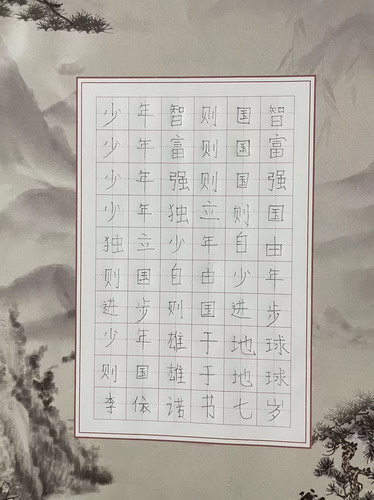 少年智则国智
少年富则国富
少年强则国强
少年独立则国
独立少年自由
则国自由少年
进步则国进步
少年雄于地球
则国雄于地球
李依诺书七岁